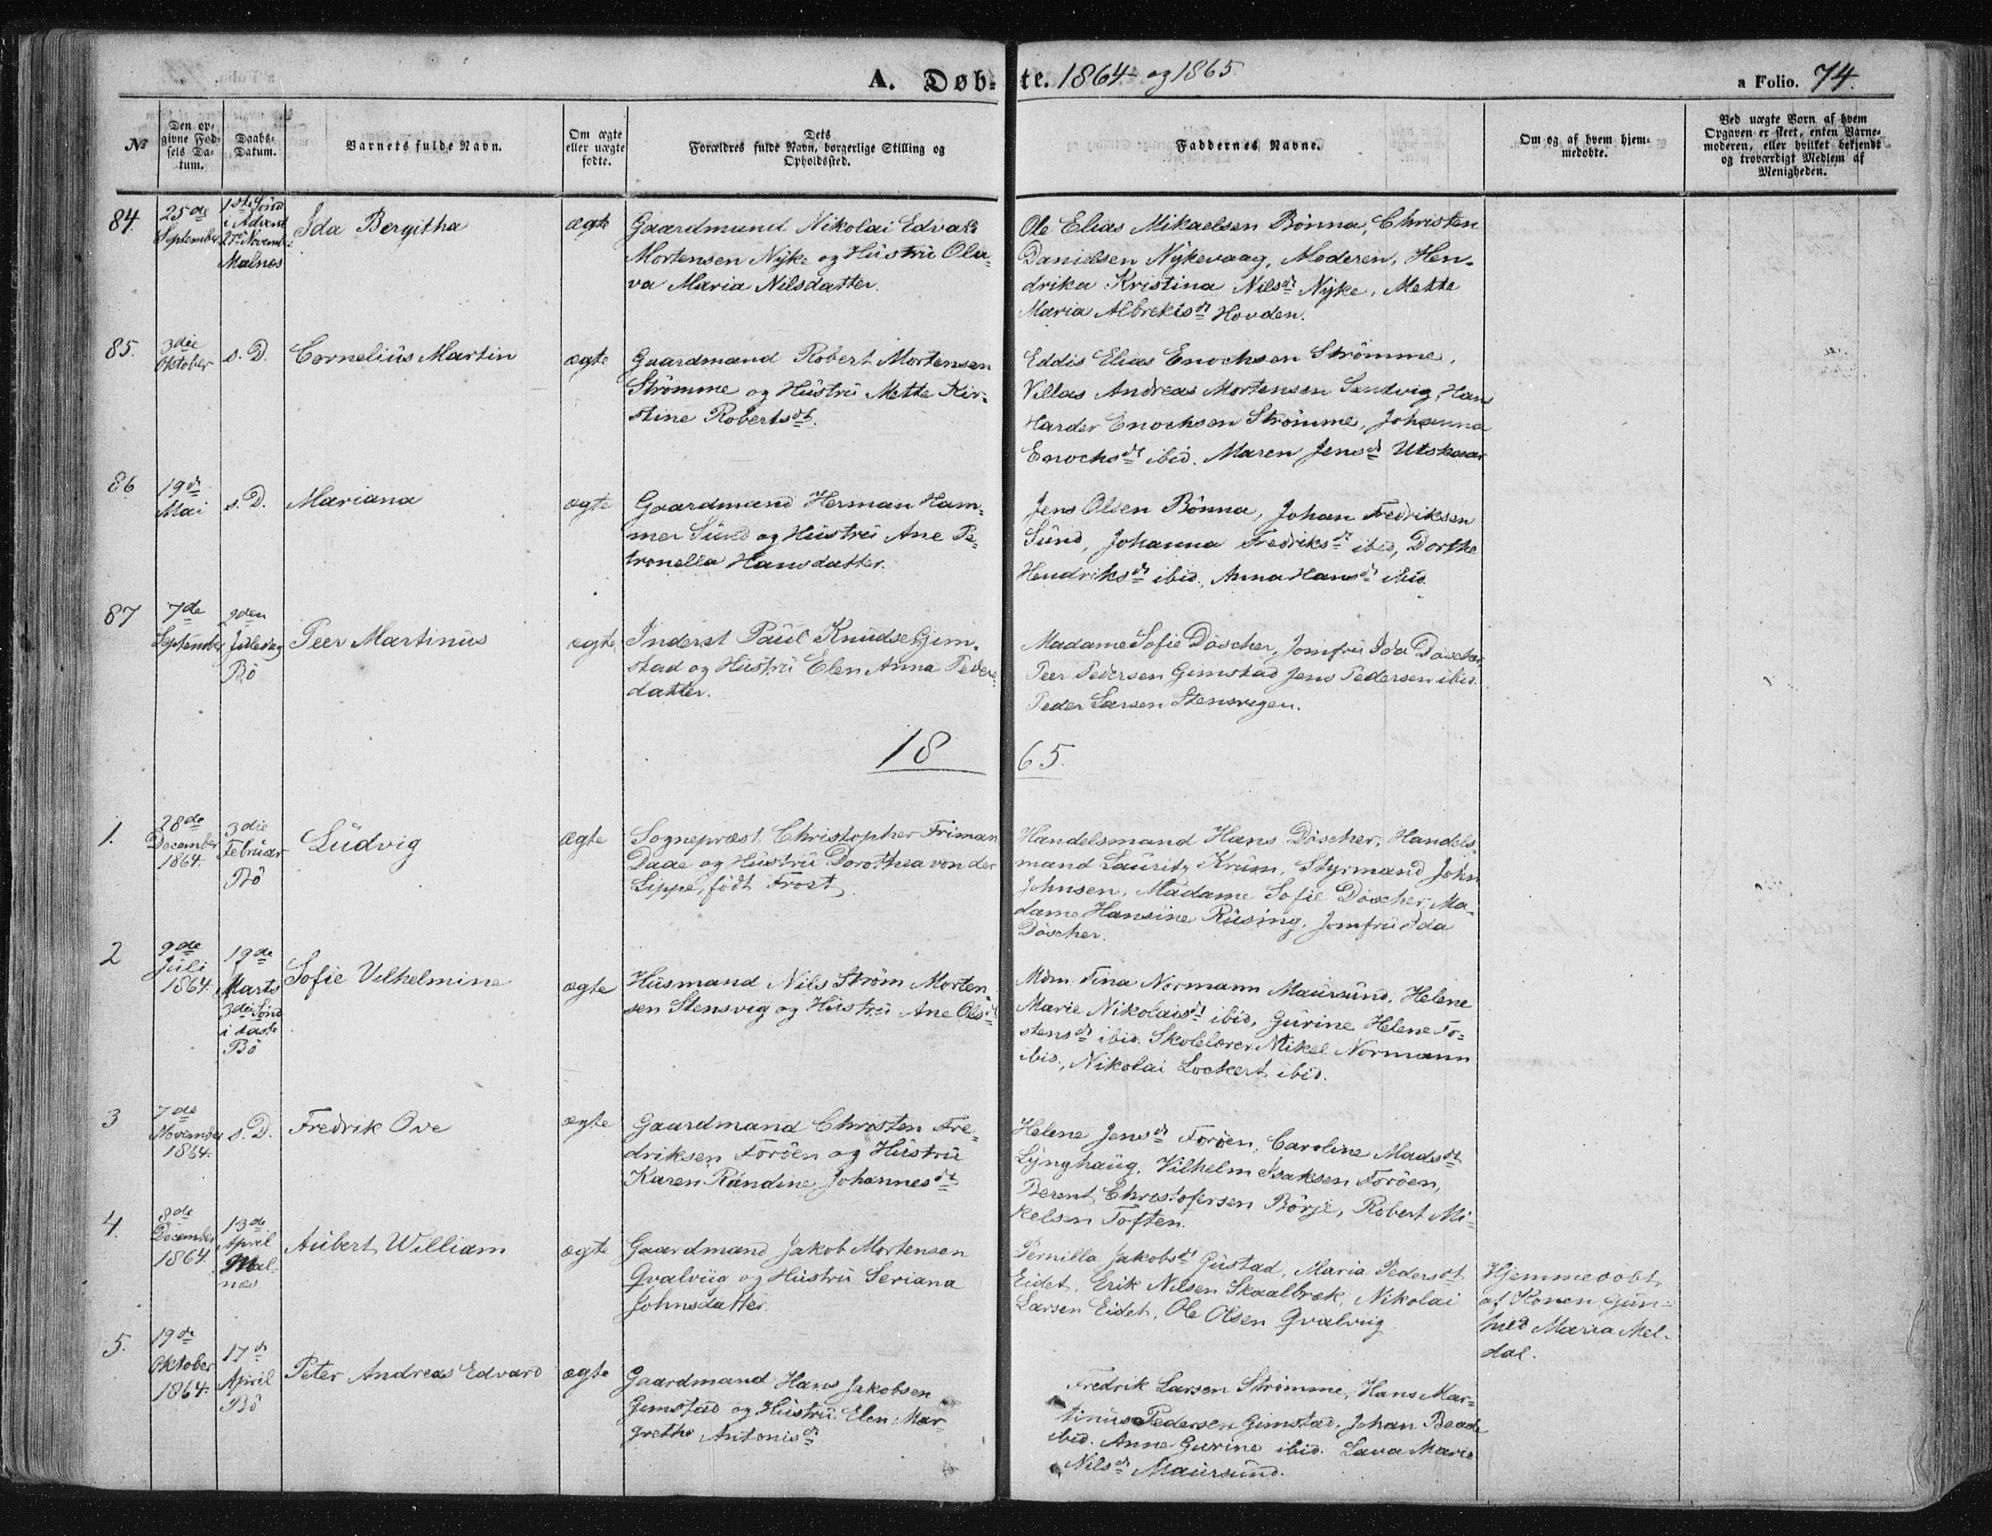 A. Døbte. 1864 og 1865.
a Folio. 74.
No
Den opgivne Fødsels Datum.
Daabs-Datum.
Barnets fulde Navn.
Om ægte eller uægte fødte.
Dets Forældres fulde Navn, borgerlige Stilling og Opholdssted.
Faddernes Navne.
Om og af hvem hjemmedøbte.
Ved uægte Børn af hvem Opgaven er skeet, enten Barnemoderen, eller hvilket bekjendt og troværdigt Medlem af Menigheden.
84.
25de
September
1ste Sønd
i Advent
27de Novemb:
Malnæs
Ida Bergitha
ægte
Gaardmand Nikolai Edvard
Mortensen Nyke og Hustru Ola-
va Maria Nilsdatter.
Ole Elias Mikaelsen Bønna, Christen
Danielsen Nykevaag, Moderen, Hen-
drika Kristina Nilsdt Nyke, Mette
Maria Albrektsdt Hovden.
85.
3die
Oktober
s. D.
Cornelius Martin
ægte
Gaardmand Robert Mortensen
Strømme og Hustru Mette Kir-
stine Robertsdt.
Eddis Elias Enochsen Strømme,
Villas Andreas Mortensen Sandvig, Hans
Harder Enochsen Strømme, Johanna
Enochsdt ibid. Maren Jensdt Utskaar
86
19de
Mai
s. D.
Mariana
ægte
Gaardmand Herman Ham-
mer Sund og Hustru Ane Pe-
tronella Hansdatter.
Jens Olsen Bønna, Johan Fredriksen
Sund, Johanna Fredriksdt ibid, Dorthe
Hendriksdt ibid, Anna Hansdt ibid.
87
7de
September
2den
Juledag
Bø
Peer Martinus
ægte
Inderst Paul Knudsen Gim-
stad og Hustru Elen Anna Peders
datter.
Madame Sofie Döscher, Jomfru Ida Döscher
Peer Pedersen Gimstad Jens Pedersen ibid.
Peder Larsen Stensvigen.
1865.
1.
28de
December
1864.
3die
Februar
Bø
Ludvig
ægte
Sognepræst Christopher Friman
Dade og Hustru Dorothea von der
Lippe, født Frost.
Handelsmand Hans Döscher, Handels-
mand Lauritz Krum, Styrmand John
Johnsen, Madame Sofie Döscher, Ma-
dame Hansine Rüsing, Jomfru Ida
Döscher.
2
9de
Juli
1864.
19de
Marts
3die Sønd
i Faste
Bø
Sofie Vilhelmine
ægte
Husmand Nils Strøm Morten-
sen Stensvig og Hustru Ane Olsdt
Mdm. Fina Normann Maursund, Helene
Marie Nikolaisdt ibid, Gurine Helene To-
stensdt ibid. Skolelærer Mikel Normann
ibid., Nikolai Lockert ibid.
3
7de
November
1864.
s. D.
Fredrik Ove
ægte
Gaardmand Christen Fre-
driksen Forøen og Hustru
Karen Randine Johannesdt
Helene Jensdt Forøen, Caroline Madsdt
Lynghaug, Vilhelm Isaksen Forøen,
Berent Christofersen Børje, Robert Mi-
kelsen Toften.
4.
8de
December
1864.
13de
April
Mal-
nes
Aubert William
ægte
Gaardmand Jakob Mortensen
Qvalviig og Hustru Seriana
Johnsdatter.
Pernilla Jakobsdt Gustad, Maria Pedersdt
Eidet, Erik Nilsen Skaalbrek, Nikolai
Larsen Eidet, Ole Olsen Qvalvig
Hjemmedøbt
af Konen Gun-
hild Maria Mel-
dal.
5.
19de
Oktober
1864.
17de
April
Bø
Peter Andreas Edvard
ægte
Gaardmand Hans Jakobsen
Gimstad og Hustru Elen Mar-
grethe Antonisdt
Fredrik Larsen Strømme, Hans Mar-
tinus Pedersen Gimstad, Johan Baade
ibid. Anne Gurine ibid. Lava Marie
Nilsdt Maursund.